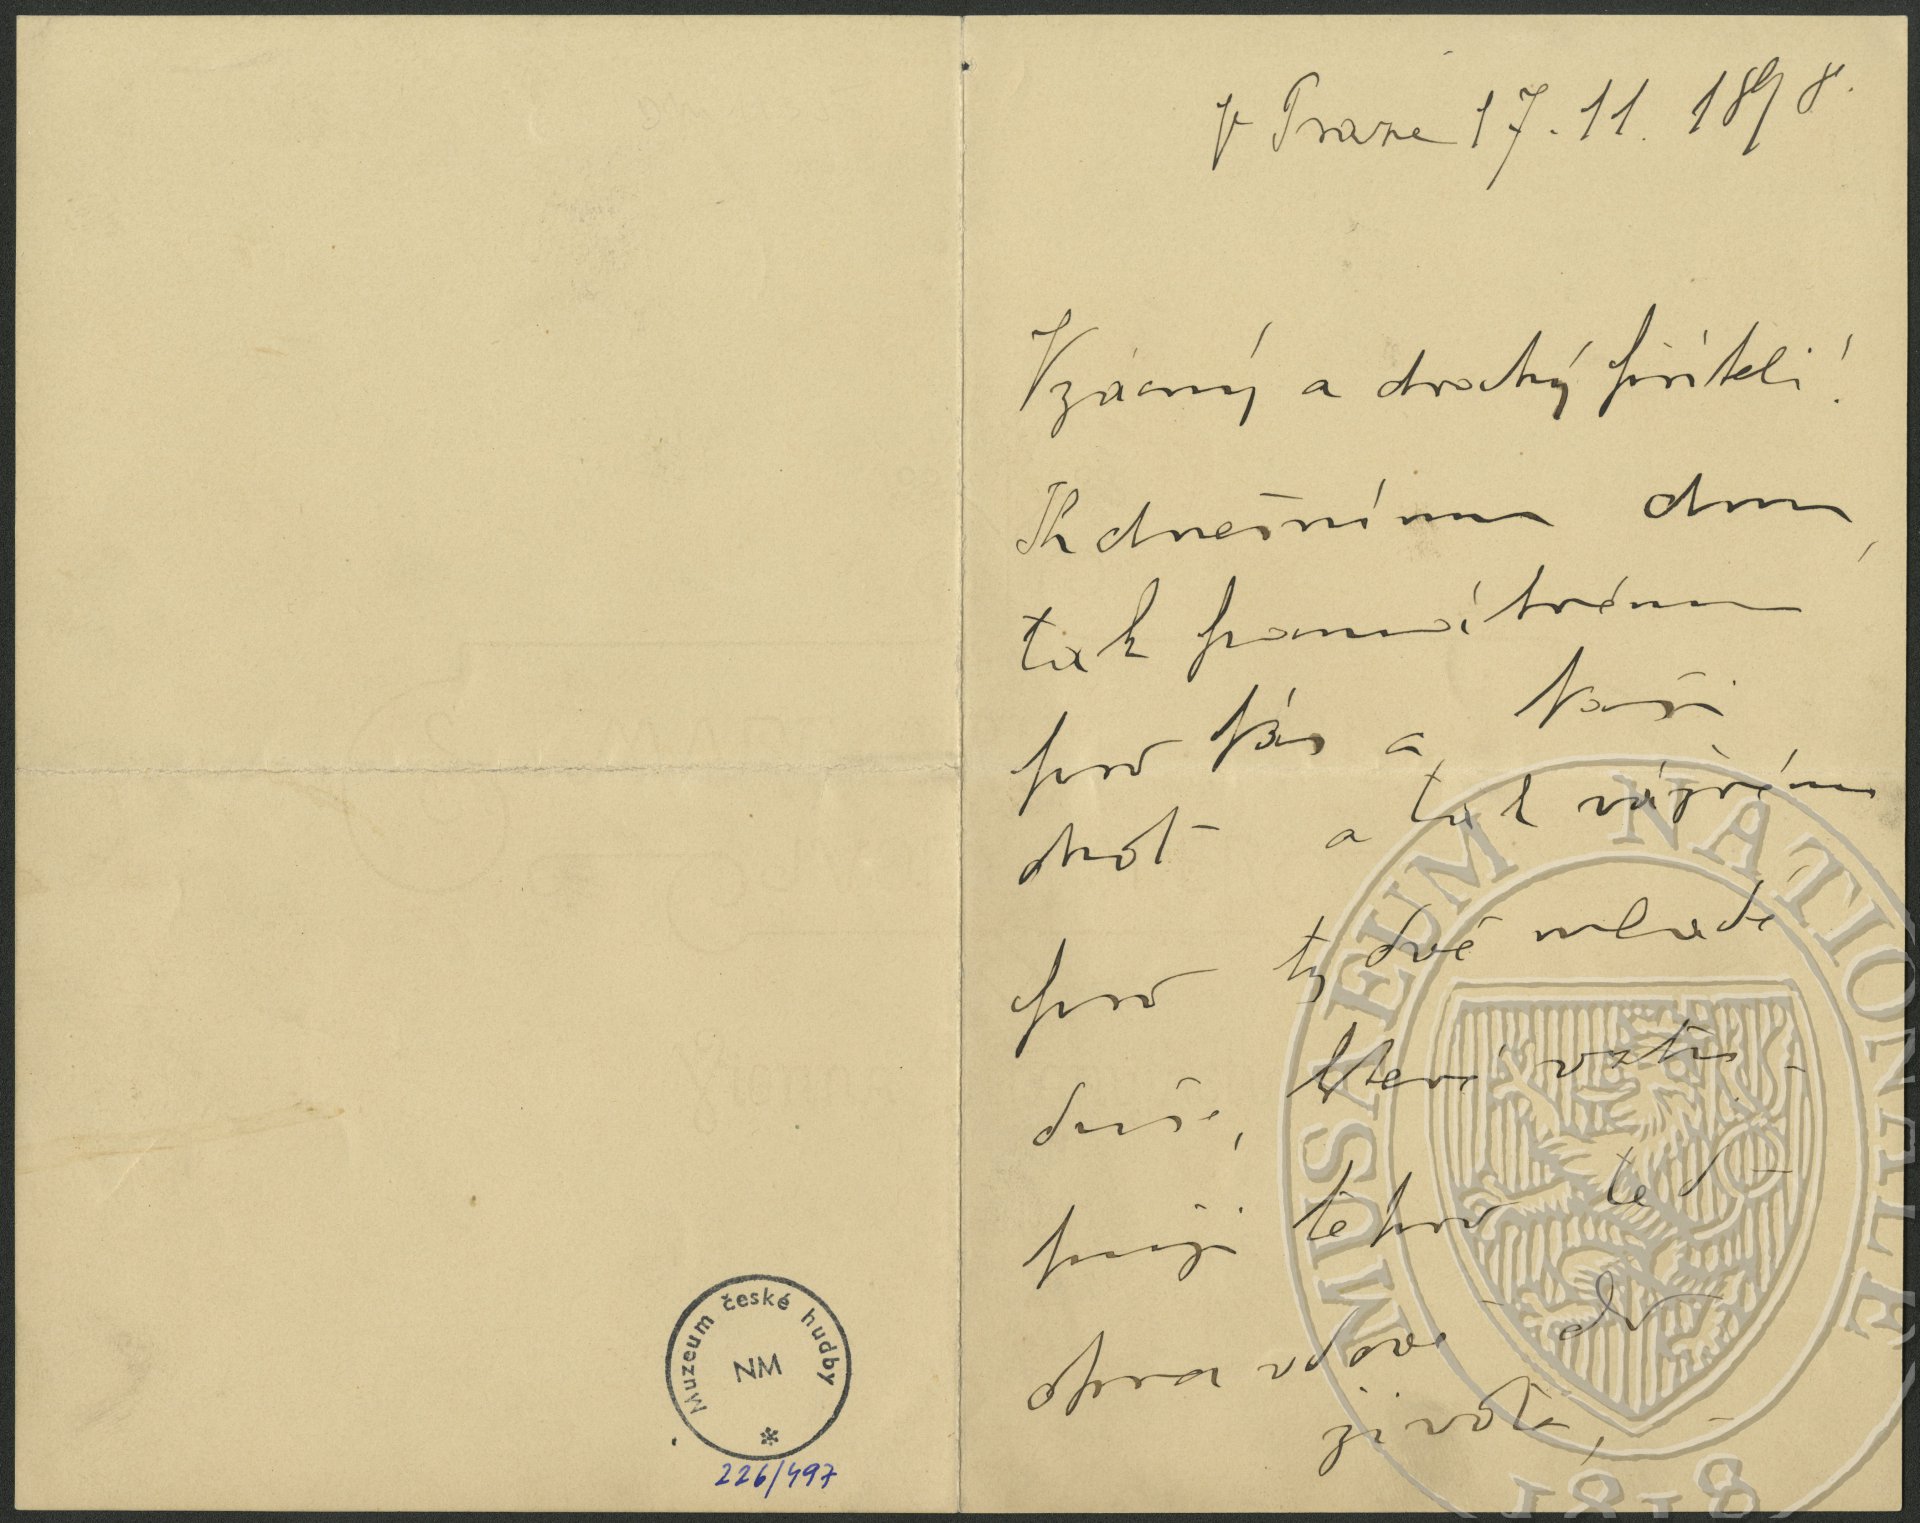 V Praze 17. 11. 1898.
Vzácný a drahý příteli!
K dnešnímu dnu,
tak památnému
pro Vás a Vaši
choť a tak vážnému
pro ty dvě mladé
duše, které vstu-
pují teprv teď
opravdově do
života,
Muzeum české hudby
NM
226/497
MUSAEUM NATIONALE
1818